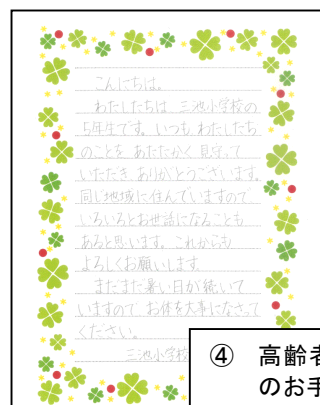 こんにちは。
わたしたちは 三池小学校の
5年生です。いつも わたしたち
のことを あたたかく 見守って
いただき ありがとうございます。
同じ地域に住んでいますので
いろいろとお世話になることも
あると思います。これからも
よろしくお願いします
まだまだ暑い日が続いて
いますので お体を大事になさって
ください。
三池小学校
④ 高齢者
のお手